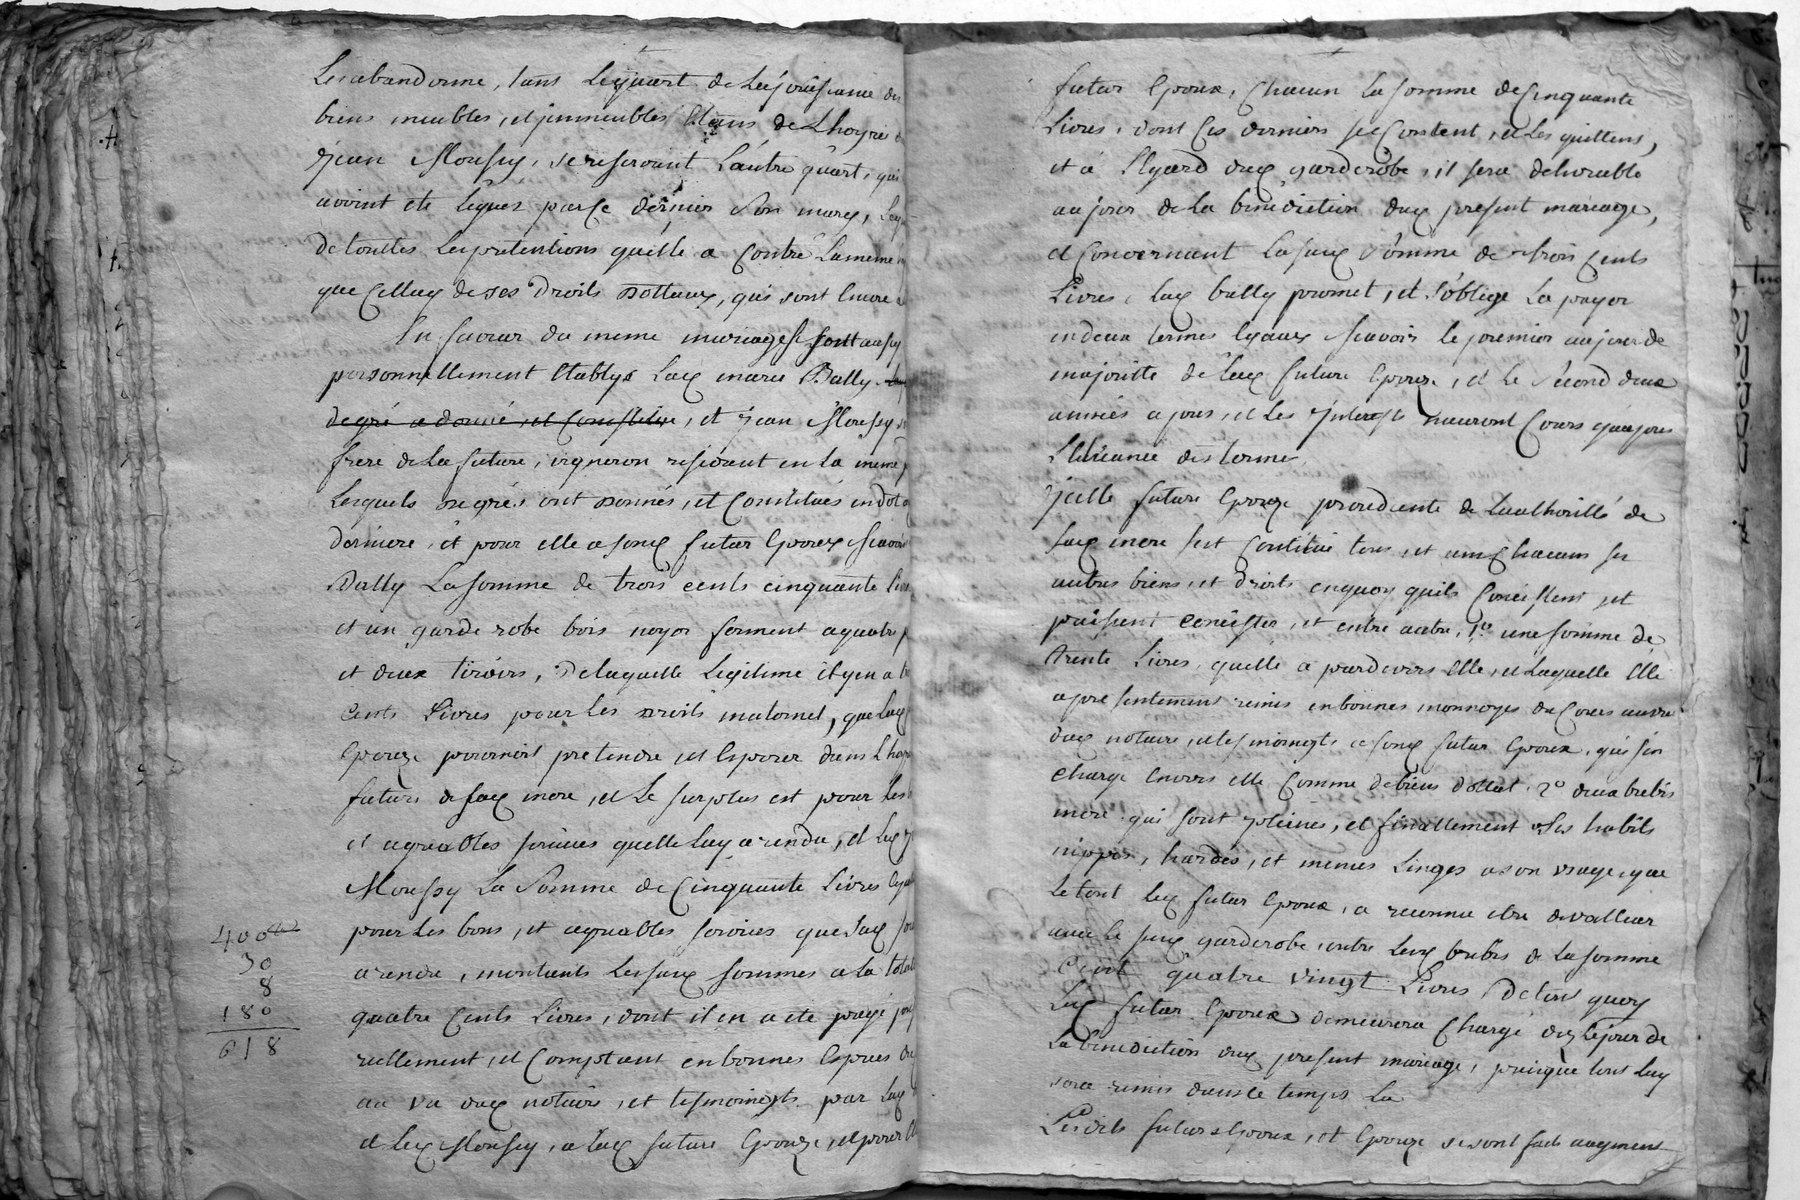 Les abandonne, sans le quart de la jouissance des
biens meubles, et jmmeubles étans de Lhoyrie
jean Moussy, se reservant Lautre quart, qui
avoint eté legués par ce dernier son mary,
de touttes les pretentions quelle a contre La meme
que celluy de ses Droits Dottaux, qui sont encore
En faveur du meme mariage se sont aussy
personnellement etablys Lad marie Bally
de gré a donné, et constitue, et jean Moussy
frere de La future, vigneron residant en la meme
Lesquels de gré ont donnés, et constitués en dot
derniere, et pour elle a son futur Epoux scavoir
Bally La somme de trois cents cinquante Liv
et un garde robe bois noyer ferment a quatre
et deux tiroirs, De laquelle Legitime il y en a
cents Livres pour les droits maternel, que lad
Epouze pourroit pretendre, et esperer dans Lho
future de sad mere, et Le surplus est pour les
et agreables services quelle luy a rendu, et led
Moussy La somme de Cinquante Livres
pour Les bons, et agreables services que sad
a rendu, montants Lesd sommes a la total
quatre Cents Livres, dont il en a eté payé
reellement, et comptant en bonnes Especes
au vu dud notaire, et tesmoingts par Lad
et led Moussy, a lad future Epouze, et pour
400
30
8
180
618
futur Epoux, chacun La somme de Cinquante
Livres, dont ces derniers se Content, et les quittent,
et a l'Egard dud garderobe, il sera délivrable
au jour de La bénédiction dud present mariage,
et concernant Lasusd somme de trois cents
Livres, Lad bally promet, et s'oblige La payer
en deux termes egaux scavoir le premier au jour de
majoritté de Lad future Epouze, et Le second deux
années apres, et Les jnterests nauront Cours quapres
L'échéance des termes
jcelle future Epouze procediente de Lauthoritté de
sad mere sest constitué tous, et unchacuns ses
autres biens, et droits, enquoy quils Concistent, et
puissent concister, et entre autre, 1º une somme de
trente Livres, quelle a pardevers elle, et Laquelle Elle
a presentement remis en bonnes monnoyes de Cours au vu
dud notaire, et tesmoingts a sond futur Epoux, qui sen
charge Envers elle Comme de biens dottal, 2º deux brebis
mere qui sont pleines, et finallement Ses habits
nippes, hardes, et menues Linges a son usage, que
Le tout led futur Epoux, a reconnu etre de valleur
avec le susd garderobe, outre Lesd brebis de La somme
Cent quatre vingt Livres, De tout quoy
Led futur Epoux demeurera chargé dez le jour de
La bénédiction dud present mariage, puisque tout Luy
sera remis dans ce temps La
Lesdits futurs Epoux, et Epouze se sont faits augment